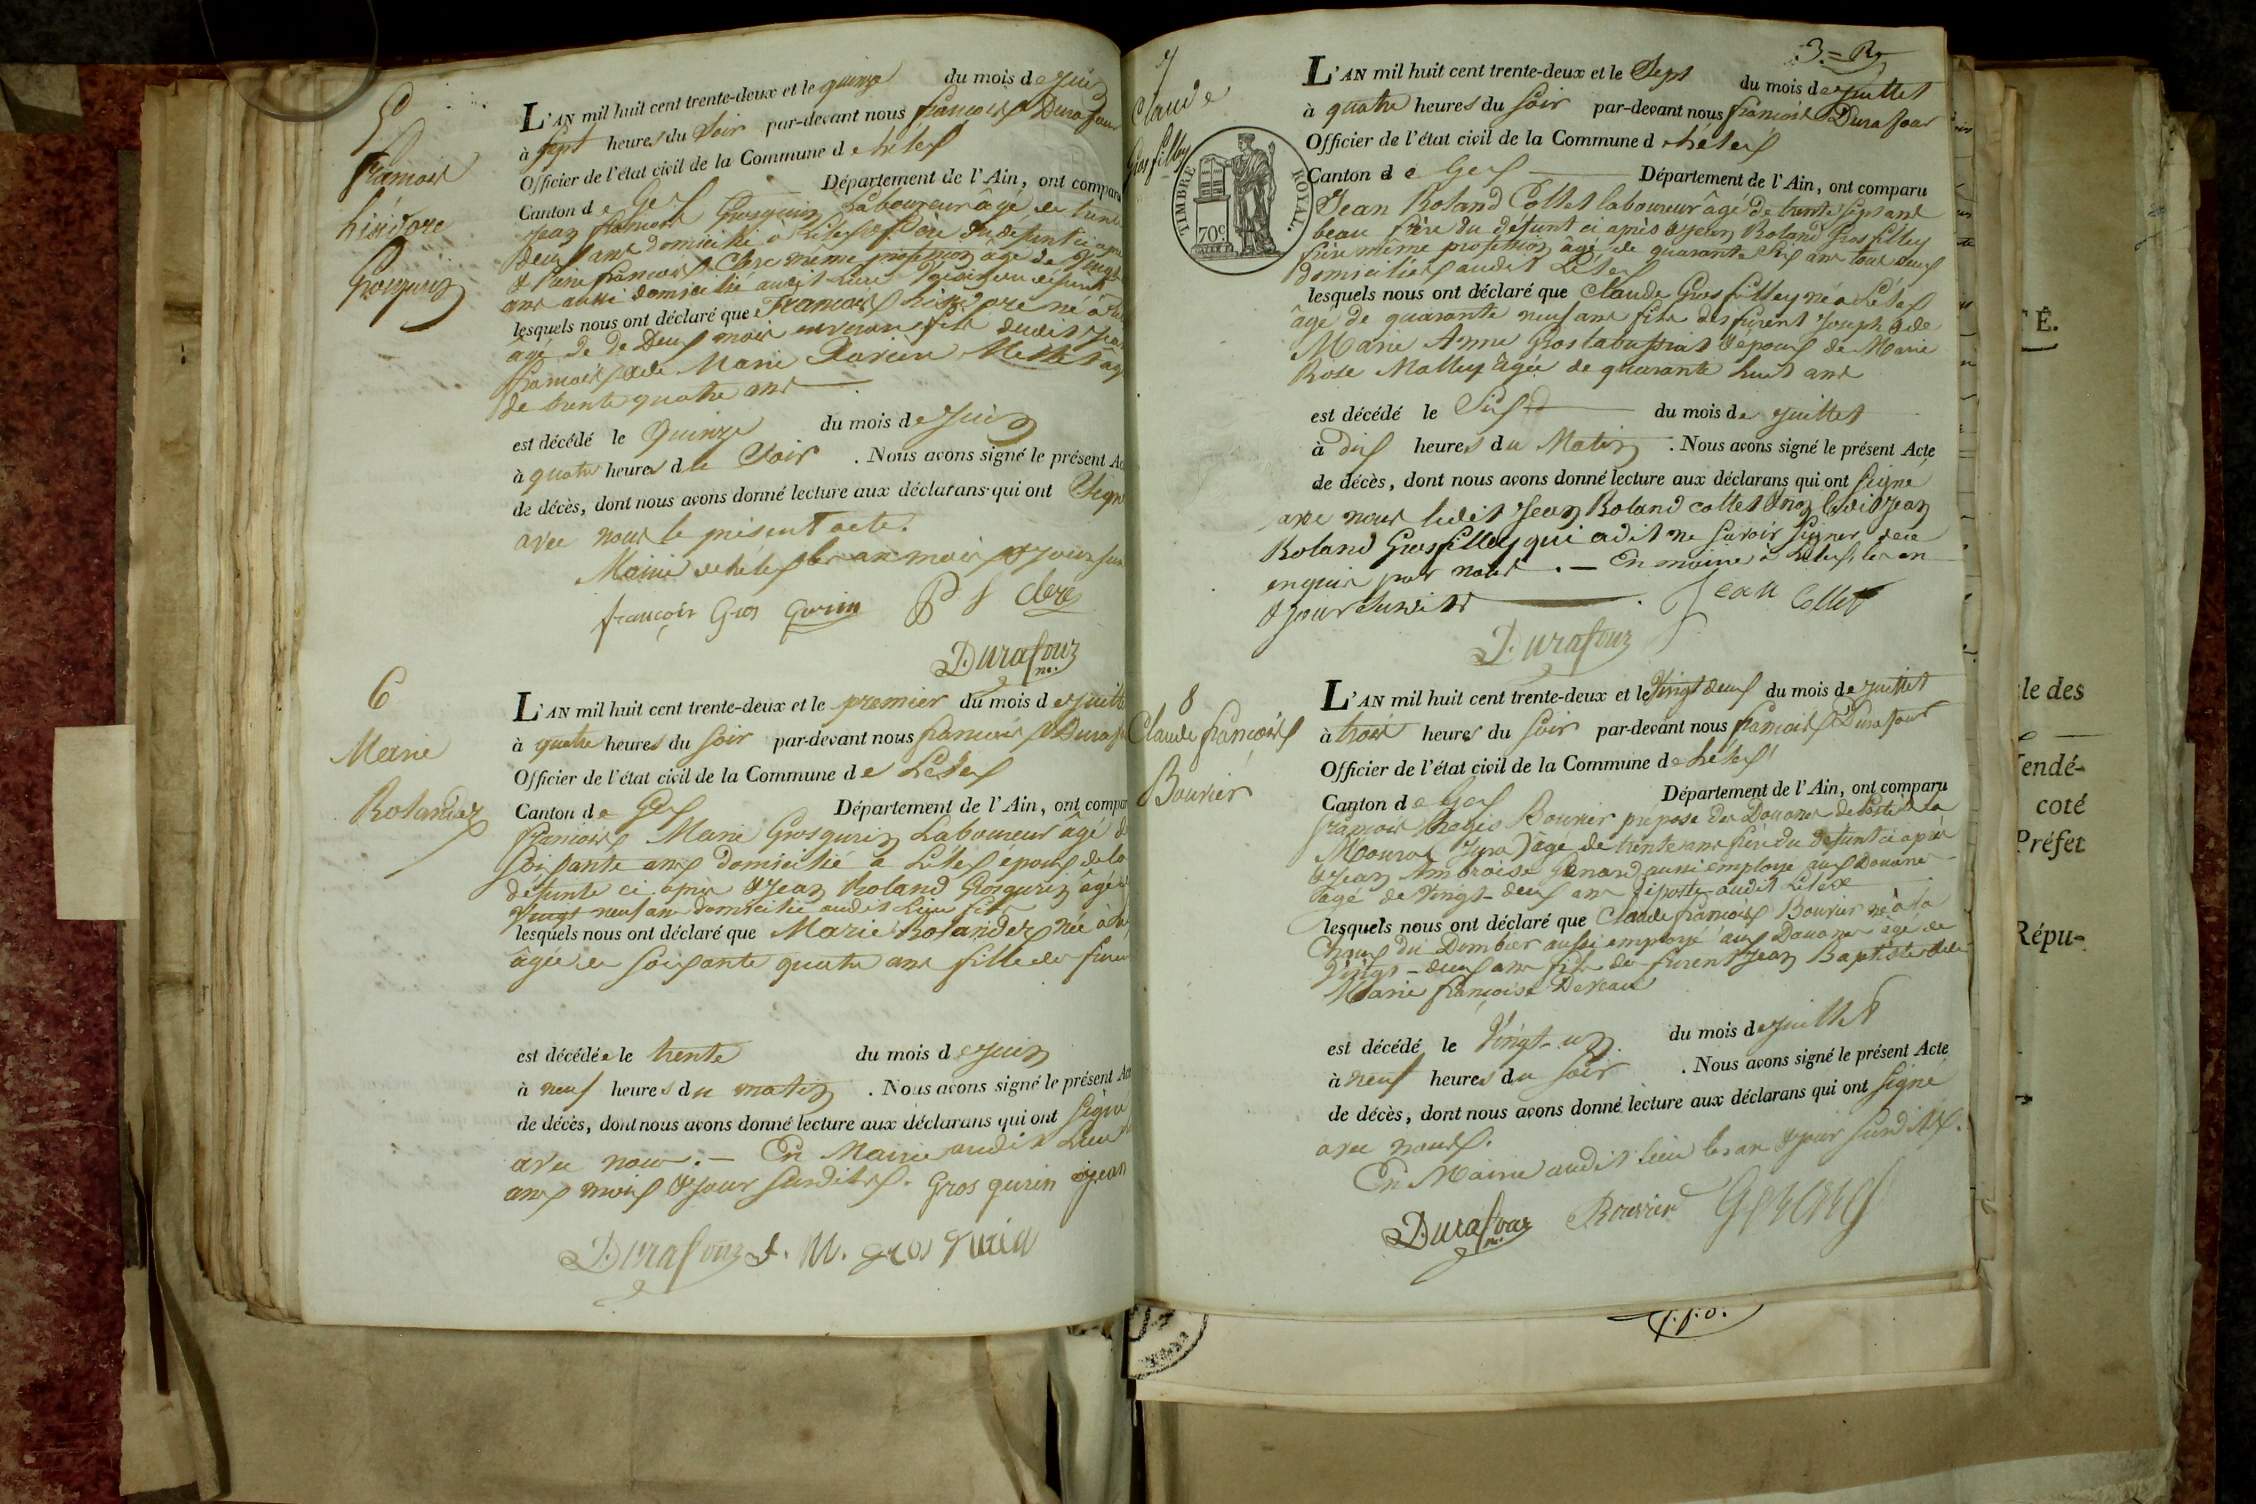 5
François
hisidore
Grosgurin
L'AN mil huit cent trente-deux et le quinze du mois de juin
à sept heures du Soir par-devant nous françois Durafour
Officier de l'état civil de la Commune de Lélex
Canton de Gex Département de l'Ain, ont comparu
jean françois Grosgurin Laboureur âgé de trente
deux ans domicilié à Lélex père du défunt ci après
& Pierre françois Clerc même profession âgé de vingt
ans aussi domicilié audit lieu du défunt
lesquels nous ont déclaré que François hisidore né à
âgé de de Deux mois environ fils dudit jean
françois & de Marie Mettet âgée
de trente quatre ans
est décédé le Quinze du mois de juin
à quatre heures du Soir . Nous avons signé le présent Ac
de décès, dont nous avons donné lecture aux déclarans qui ont Signé
avec nous le présent acte.
Mairie de Lélex les an mois & jour sus
françois Gros Gurin P f Clerc
Durafour
6
Marie
Rolandez
L'AN mil huit cent trente-deux et le premier du mois de juillet
à quatre heures du soir par-devant nous françois Durafour
Officier de l'état civil de la Commune de Lélex
Canton de Gex Département de l'Ain, ont compar
françois Marie Grosgurin Laboureur âgé de
soixante ans domicilié à Lélex époux de la
défunte ci après & jean Roland Grosgurin âgé de
vingt neuf ans domicilié audit lieu fils
lesquels nous ont déclaré que Marie Rolandez née à
âgée de soixante quatre ans fille de furent
est décédée le trente du mois de juin
à neuf heures du matin . Nous avons signé le présent Ac
de décès, dont nous avons donné lecture aux déclarans qui ont signé
avec nous. — En Mairie audit Lieu
ans mois & jour susdits. Gros gurin jean
Durafour f. M. gros gurin
3.e R.
7
Claude
Grosfilley
TIMBRE ROYAL.
70c
L'AN mil huit cent trente-deux et le Sept du mois de juillet
à quatre heures du soir par-devant nous françois Durafour
Officier de l'état civil de la Commune de Lélex
Canton de Gex Département de l'Ain, ont comparu
Jean Roland Collet laboureur âgé de trente sept ans
beau frère du défunt ci après & jean Roland Grosfilley
frère même profession âgé de quarante six ans tous deux
domiciliés audit Lélex
lesquels nous ont déclaré que Claude Grosfilley né à Lélex
âgé de quarante neuf ans fils des furent Joseph & de
Marie Anne & époux de Marie
Rose âgée de quarante huit ans
est décédé le Six du mois de juillet
à dix heures du Matin . Nous avons signé le présent Acte
de décès, dont nous avons donné lecture aux déclarans qui ont signé
avec nous ledit Jean Roland collet & non ledit Jean
Roland Grosfilley qui a dit ne savoir signer de ce
enquis par nous. — En mairie à Lélex les an
& jour susdits. Jean Collet
Durafour
8
Claude françois
Bouvier
L'AN mil huit cent trente-deux et le Vingt deux du mois de juillet
à trois heures du soir par-devant nous françois Durafour
Officier de l'état civil de la Commune de Lélex
Canton de Gex Département de l'Ain, ont comparu
françois Bouvier préposé des Douanes de la
jura âgé de trente ans frère du défunt ci après
& jean Ambroise Genard aussi employé aux Douanes
âgé de vingt-deux ans à poste audit Lélex
lesquels nous ont déclaré que Claude françois Bouvier né à la
Chaux du Dombief aussi employé aux Douanes âgé de
vingt-deux ans fils de furent Jean Baptiste & de
Marie françoise
est décédé le Vingt-un du mois de juillet
à neuf heures du soir . Nous avons signé le présent Acte
de décès, dont nous avons donné lecture aux déclarans qui ont signé
avec nous.
En Mairie audit lieu les an & jour susdits.
Durafour Bouvier Genard
É.
le des
endé-
coté
Préfet
Répu-